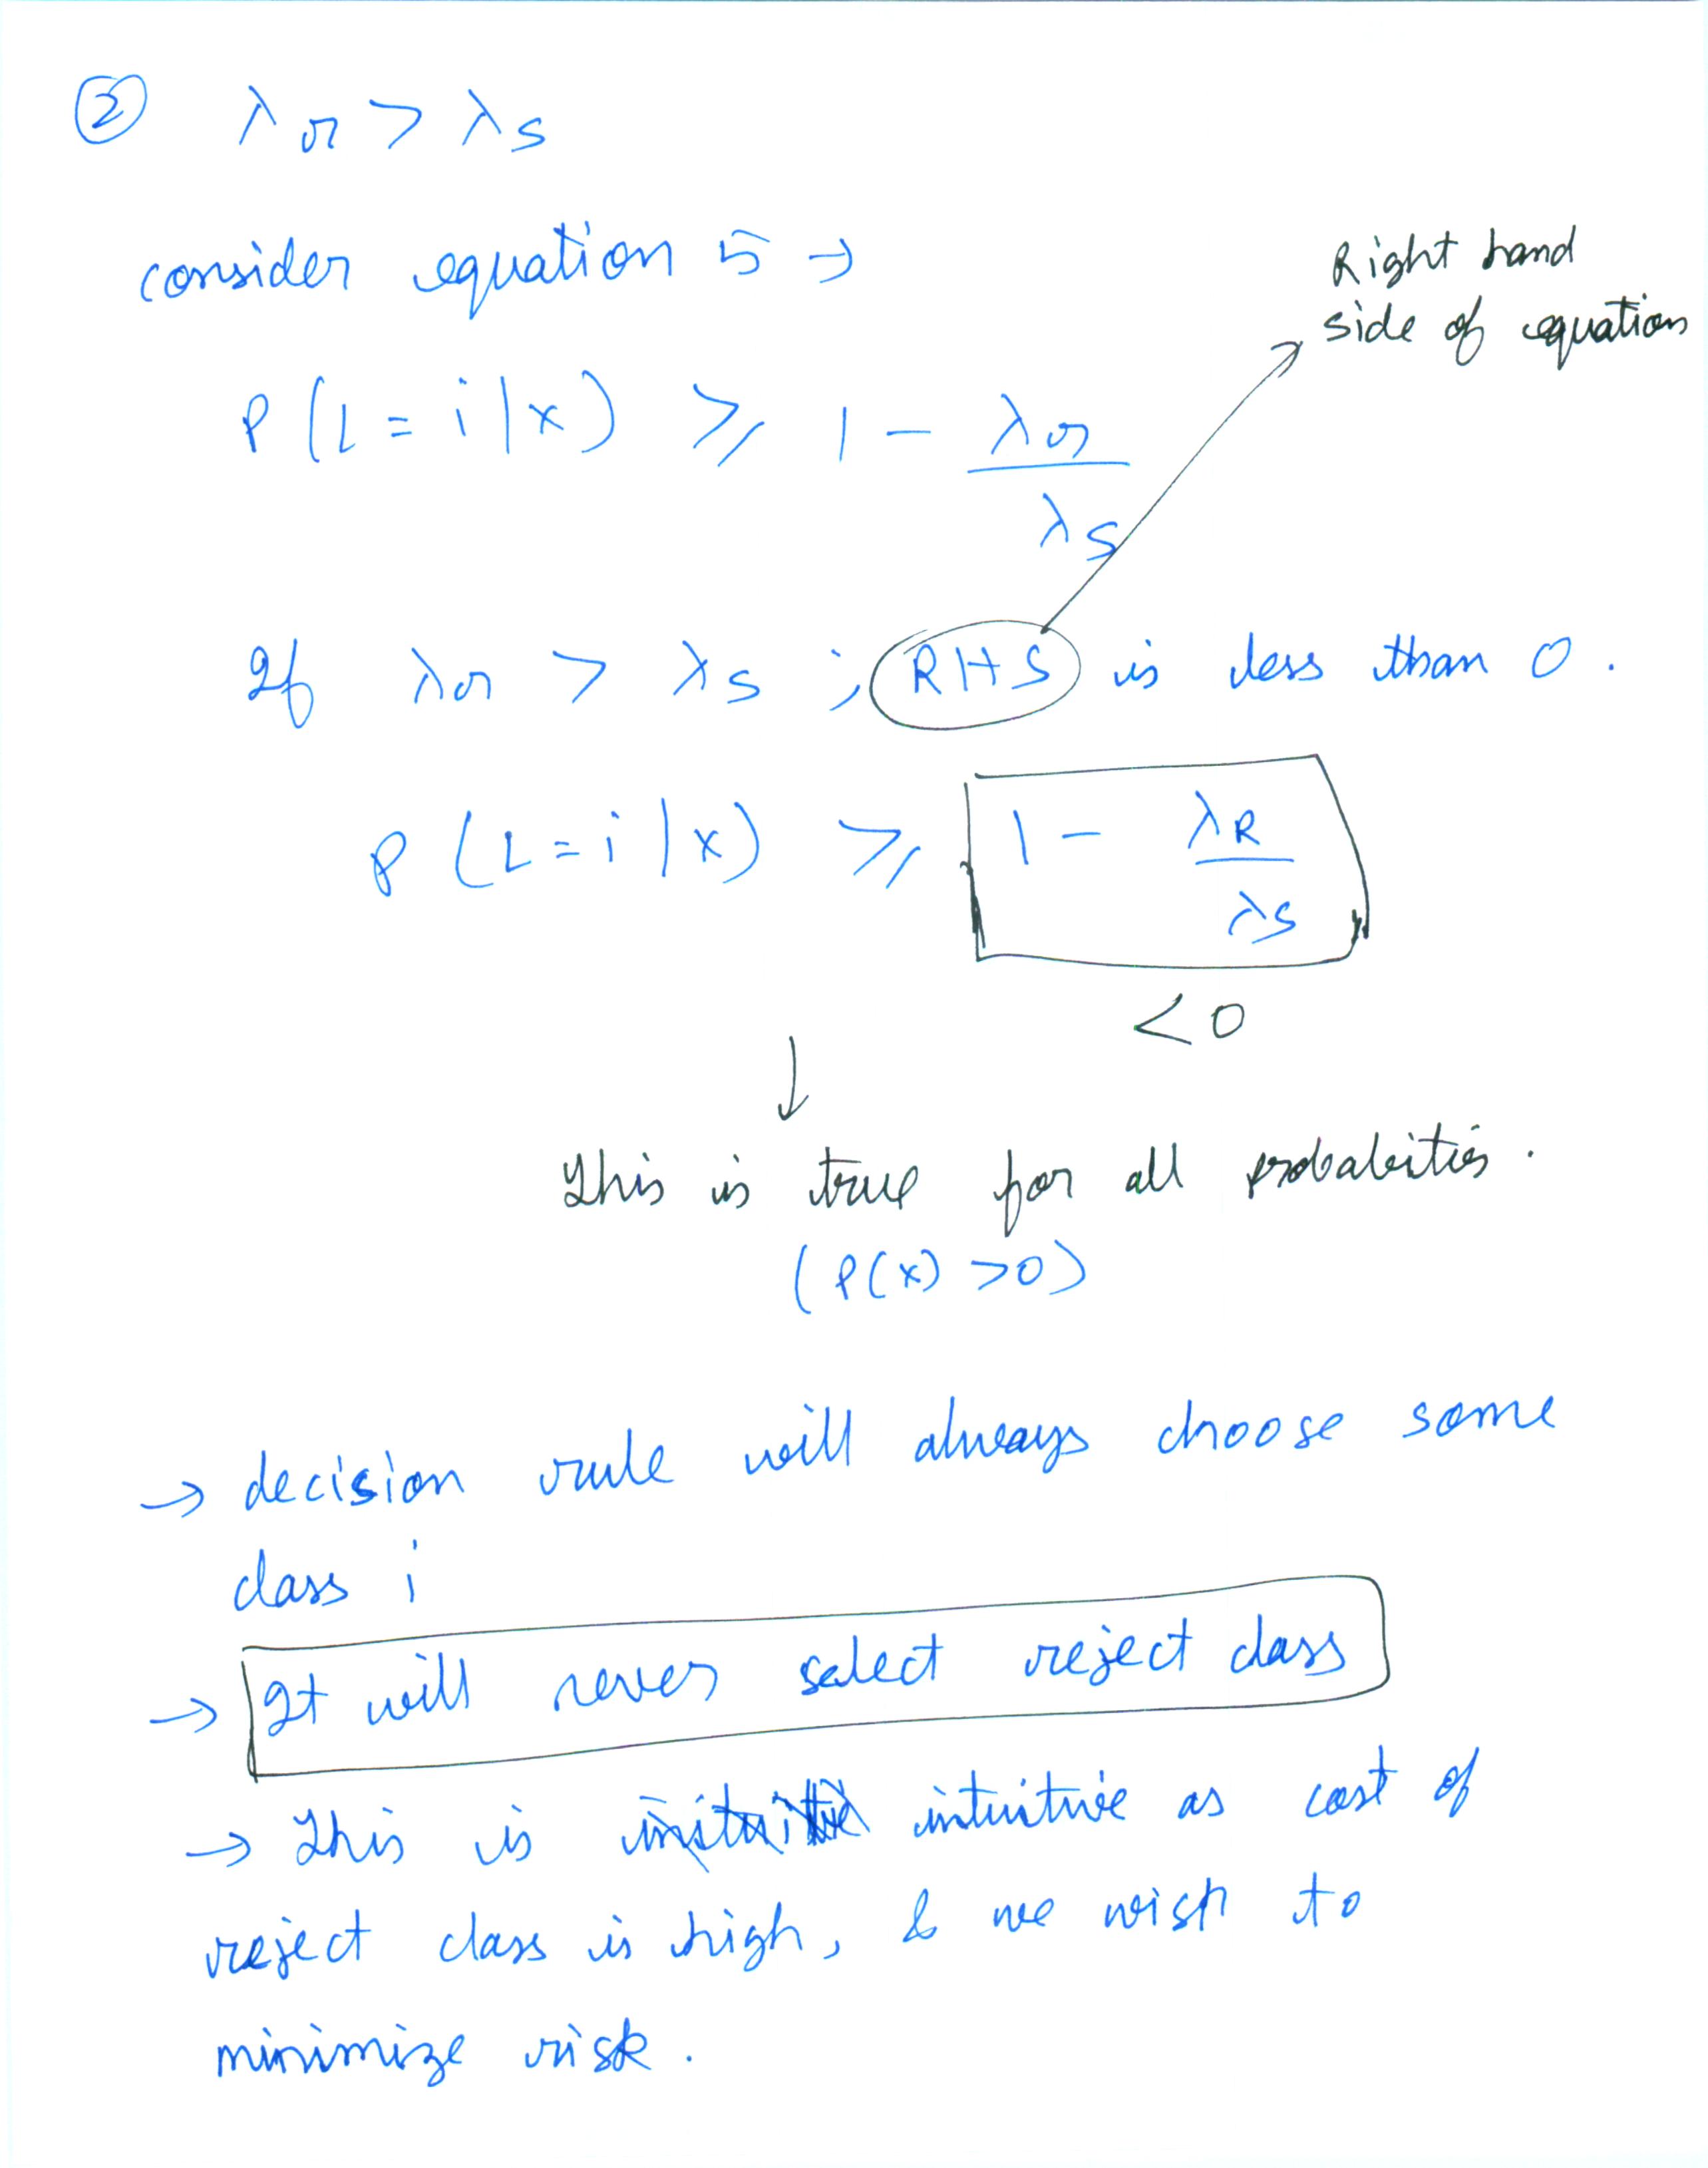 ② λr > λs
consider equation 5 →
Right hand
side of equation
P(L = i | x) ⩾ 1 - λr / λs
If λr > λs ; RHS is less than 0.
P(L = i | x) ⩾ 1 - λR / λs
< 0
↓
This is true for all probabilities.
(P(x) > 0)
→ decision rule will always choose some
class i
→ It will never select reject class
→ This is intuitive as cost of
reject class is high, & we wish to
minimize risk.